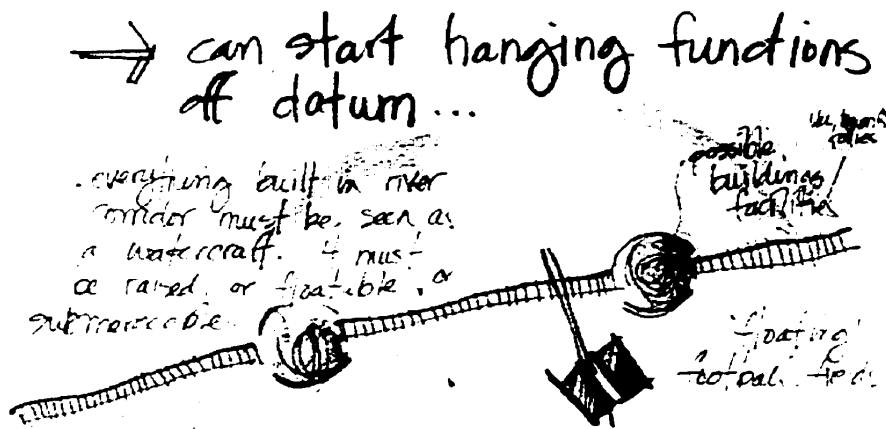 can start hanging functions
off datum...
. everything built in river
corridor must be seen as
a watercraft. it must
be raised, or floatable, or
submersible.
possible
buildings
facilities
floating
football fields